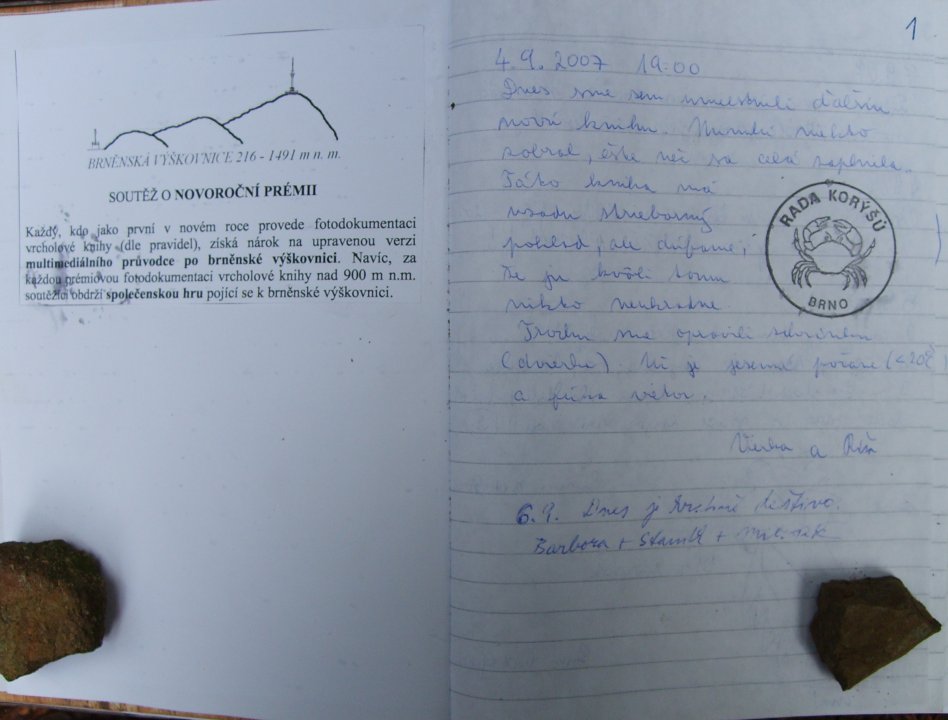 BRNĚNSKÁ VÝŠKOVNICE 216 - 1491 m n. m.
SOUTĚŽ O NOVOROČNÍ PRÉMII
Každý, kdo jako první v novém roce provede fotodokumentaci
vrcholové knihy (dle pravidel), získá nárok na upravenou verzi
multimediálního průvodce po brněnské výškovnici. Navíc, za
každou prémiovou fotodokumentaci vrcholové knihy nad 900 m n.m.
soutěžící obdrží společenskou hru pojící se k brněnské výškovnici.
1
4.9. 2007 19:00
Dnes sme sem umiestnili ďalšiu
novú knihu. Minulú niekto
zobral, ešte než sa celá zaplnila.
Táto kniha má
vzadu strieborný
pohľad, ale dúfame,
že ju kvôli tomu
nikto neukradne
Trochu sme opravili schránku
(dvierka). Už je jesenné počasie (<20°
a fúka vietor.
Vierka a
RADA KORÝŠŮ
BRNO
6.9. Dnes je deštivo.
Barbora + Staník +